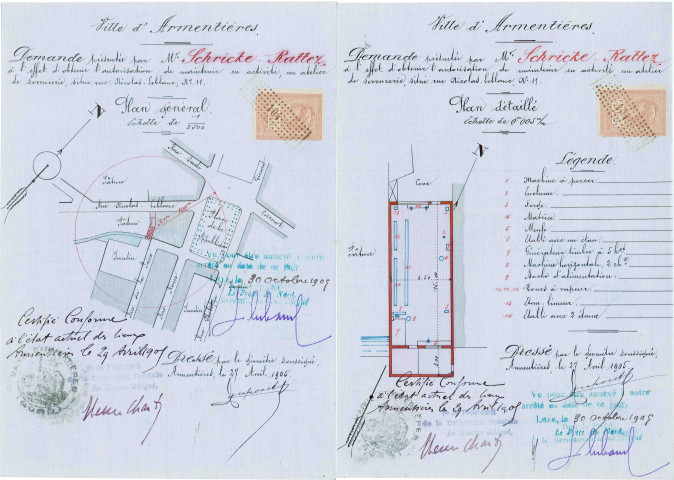 Ville d'Armentières.
Demande présentée par Mr. Schricke-Rattez
à l'effet d'obtenir l'autorisation de maintenir en activité, un atelier
de serrurerie situé rue Nicolas Leblanc, No 11.
Plan général
Echelle de 1/2500
N
Pâture
Rue Nicolas Leblanc
Pâture
Jardin
Place de la
Vu pour être annexé à notre
arrêté en date de ce jour.
30 octobre 1905
Certifié Conforme
à l'état actuel des lieux
Armentières le 29 Avril 1905
Dressé par le géomètre soussigné,
Armentières, le 27 Avril 1905.
Ville d'Armentières.
Demande présentée par Mr. Schricke-Rattez
à l'effet d'obtenir l'autorisation de maintenir en activité un atelier
de serrurerie, situé rue Nicolas Leblanc, No 11.
Plan détaillé
Echelle de 0m005 %
N
Cour
Pâture
Légende
1 Machine à percer
2 Enclume
3 Forge
4 Matrice
5 Meule
6 Etabli avec un étau
7 Générateur timbré à 5 k
8 Machine horizontale, 2 ch
9 Bache d'alimentation
13 Etau limeur
14 Etabli avec 2 étaux
Certifié Conforme
à l'état actuel des lieux
Armentières le 29 Avril 1905
Dressé par le géomètre soussigné,
Armentières, le 27 Avril 1905.
Vu pour être annexé à notre
arrêté en date de ce jour.
Lille, 30 octobre 1905
Le Préfet du Nord,